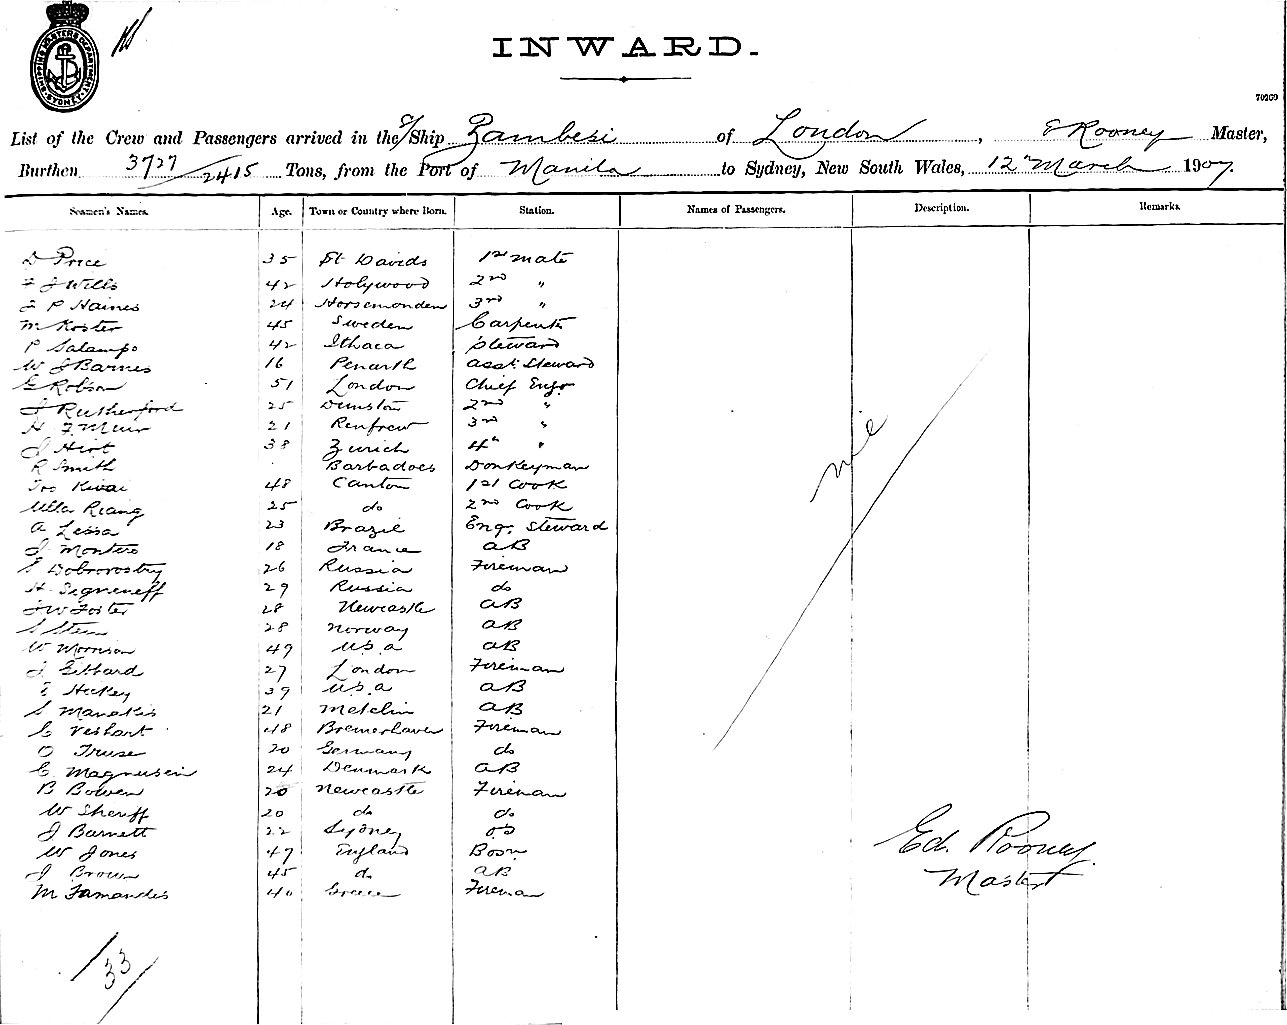 SHIPPING MASTERS DEPARTMENT SYDNEY
INWARD.
70269
List of the Crew and Passengers arrived in the S/Ship Zambesi of London, E Rooney Master,
Burthen 3727/2415 Tons, from the Port of Manila to Sydney, New South Wales, 12th March 1907.
Seamen's Names. Age. Town or Country where Born. Station. Names of Passengers. Description. Remarks.
D Price 35 St Davids 1st mate
J Wills 42 Holywood 2nd "
P Haines 24 Horsemonden 3rd "
M Koster 45 Sweden Carpentr
P Salampo 42 Ithaca Steward
W J Barnes 16 Penarth asst. Steward
G Robson 51 London Chief Engr
J Rutherford 25 Dunston 2nd "
H F Muir 21 Renfrew 3rd "
J Hirt 38 Zurich 4th "
R Smith Barbadoes Donkeyman
48 Canton 1st Cook
Ulla Riang 25 do 2nd Cook
A Lessa 23 Brazil Eng. Steward
J Montero 18 France AB
S Dobrovosty 26 Russia Fireman
H Signeneff 29 Russia do
J W Foster 28 Newcastle AB
S Steen 28 Norway AB
W Morrison 49 U.S.a AB
J Gibbard 27 London Fireman
E Hickey 39 U.S.a AB
S Manokis 21 Metelin AB
C Veshart 48 Bremerhaven Fireman
O Truse 20 Germany do
C. Magnusein 24 Denmark AB
B Bowen 20 Newcastle Fireman
W Sheriff 20 do do
J Barnett 22 Sydney OS
W Jones 47 England Bosn
J Brown 45 do AB
M Famandis 40 Greece Fireman
nil
Ed. Rooney
Master
33